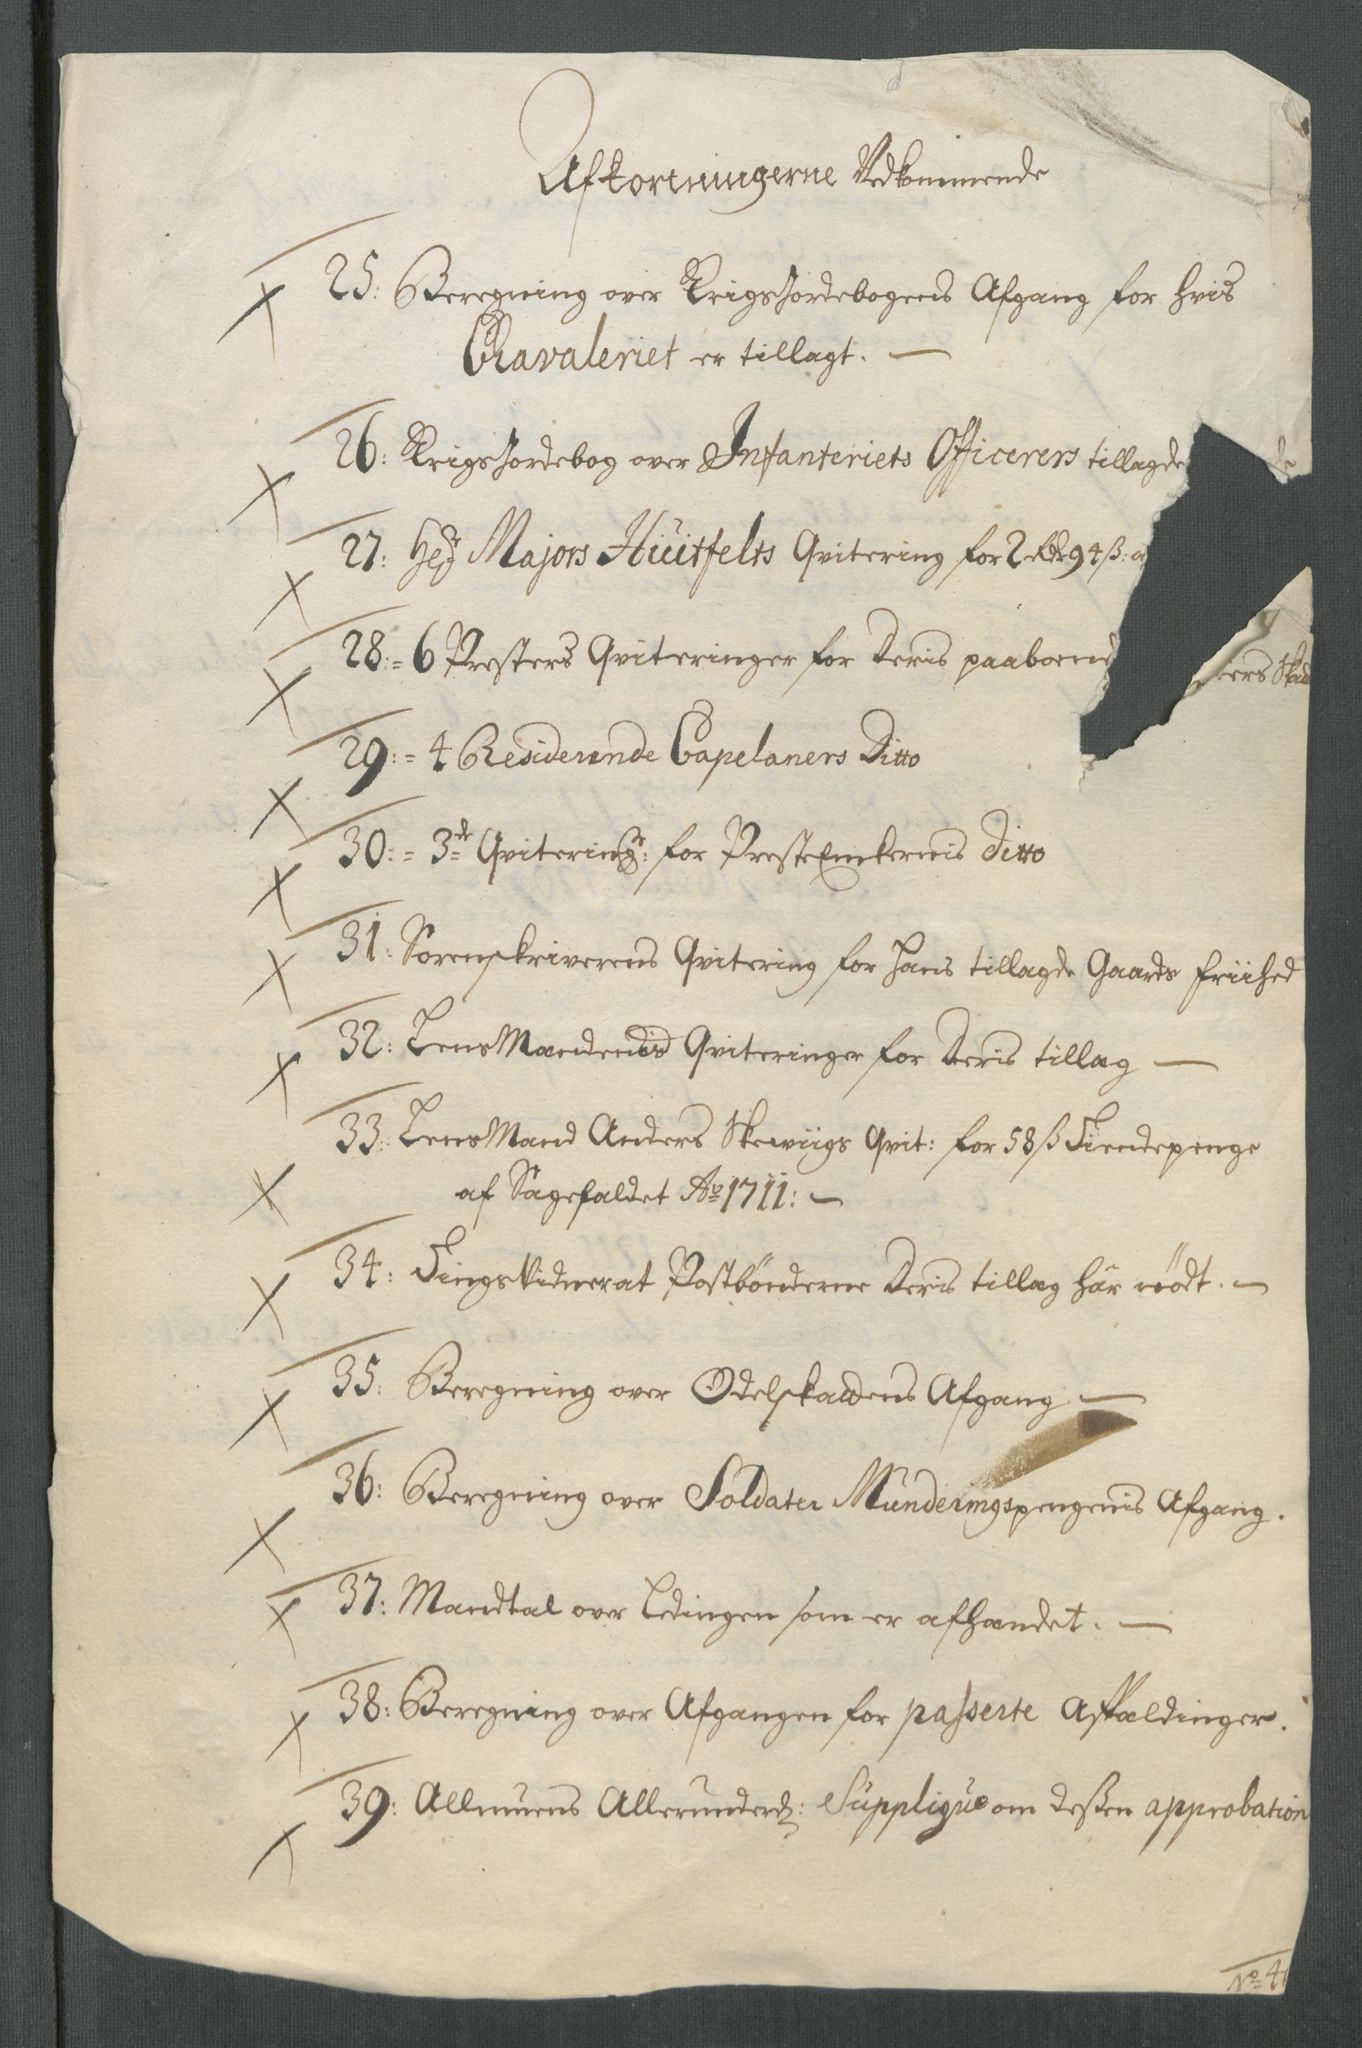 Afkortningerne Vedkommende
25: Beregning over Krigsjordebogens Afgang for hvis
Chavaleriet er tillagt. —
26: Krigsjordebog over Infanteriets Officerers tillagde
27: Hr Majors Hüitfelts Qvitering for 2 Rdr 94 ß:
28:= 6 Presters Qviteringer for deris paaboend ers Skad
29:= 4 Residerende Capelaners Ditto
30:= 3de Qvitering: for PresteEnkernis ditto
31: Sorenskriverens Qvitering for hans tillagde Gaards friihed
32: LensMændenis Qviteringer for deris tillag —
33: LensMand Anders Skewiigs Qvit: for 58 ß Tiendepenge
af Sagefaldet Ao 1711: —
34: Tingsvidne at Postbönderne deris tillag här nödt. —
35: Beregning over Odelskattens Afgang —
36: Beregning over Soldater Munderingspengenis Afgang.
37: Mandtal over Ledingen som er afhandet. —
38: Beregning over Afgangen for passerte Affældinger.
39: Allmuens Allerunderd: Supplique om dessen approbation
No 4